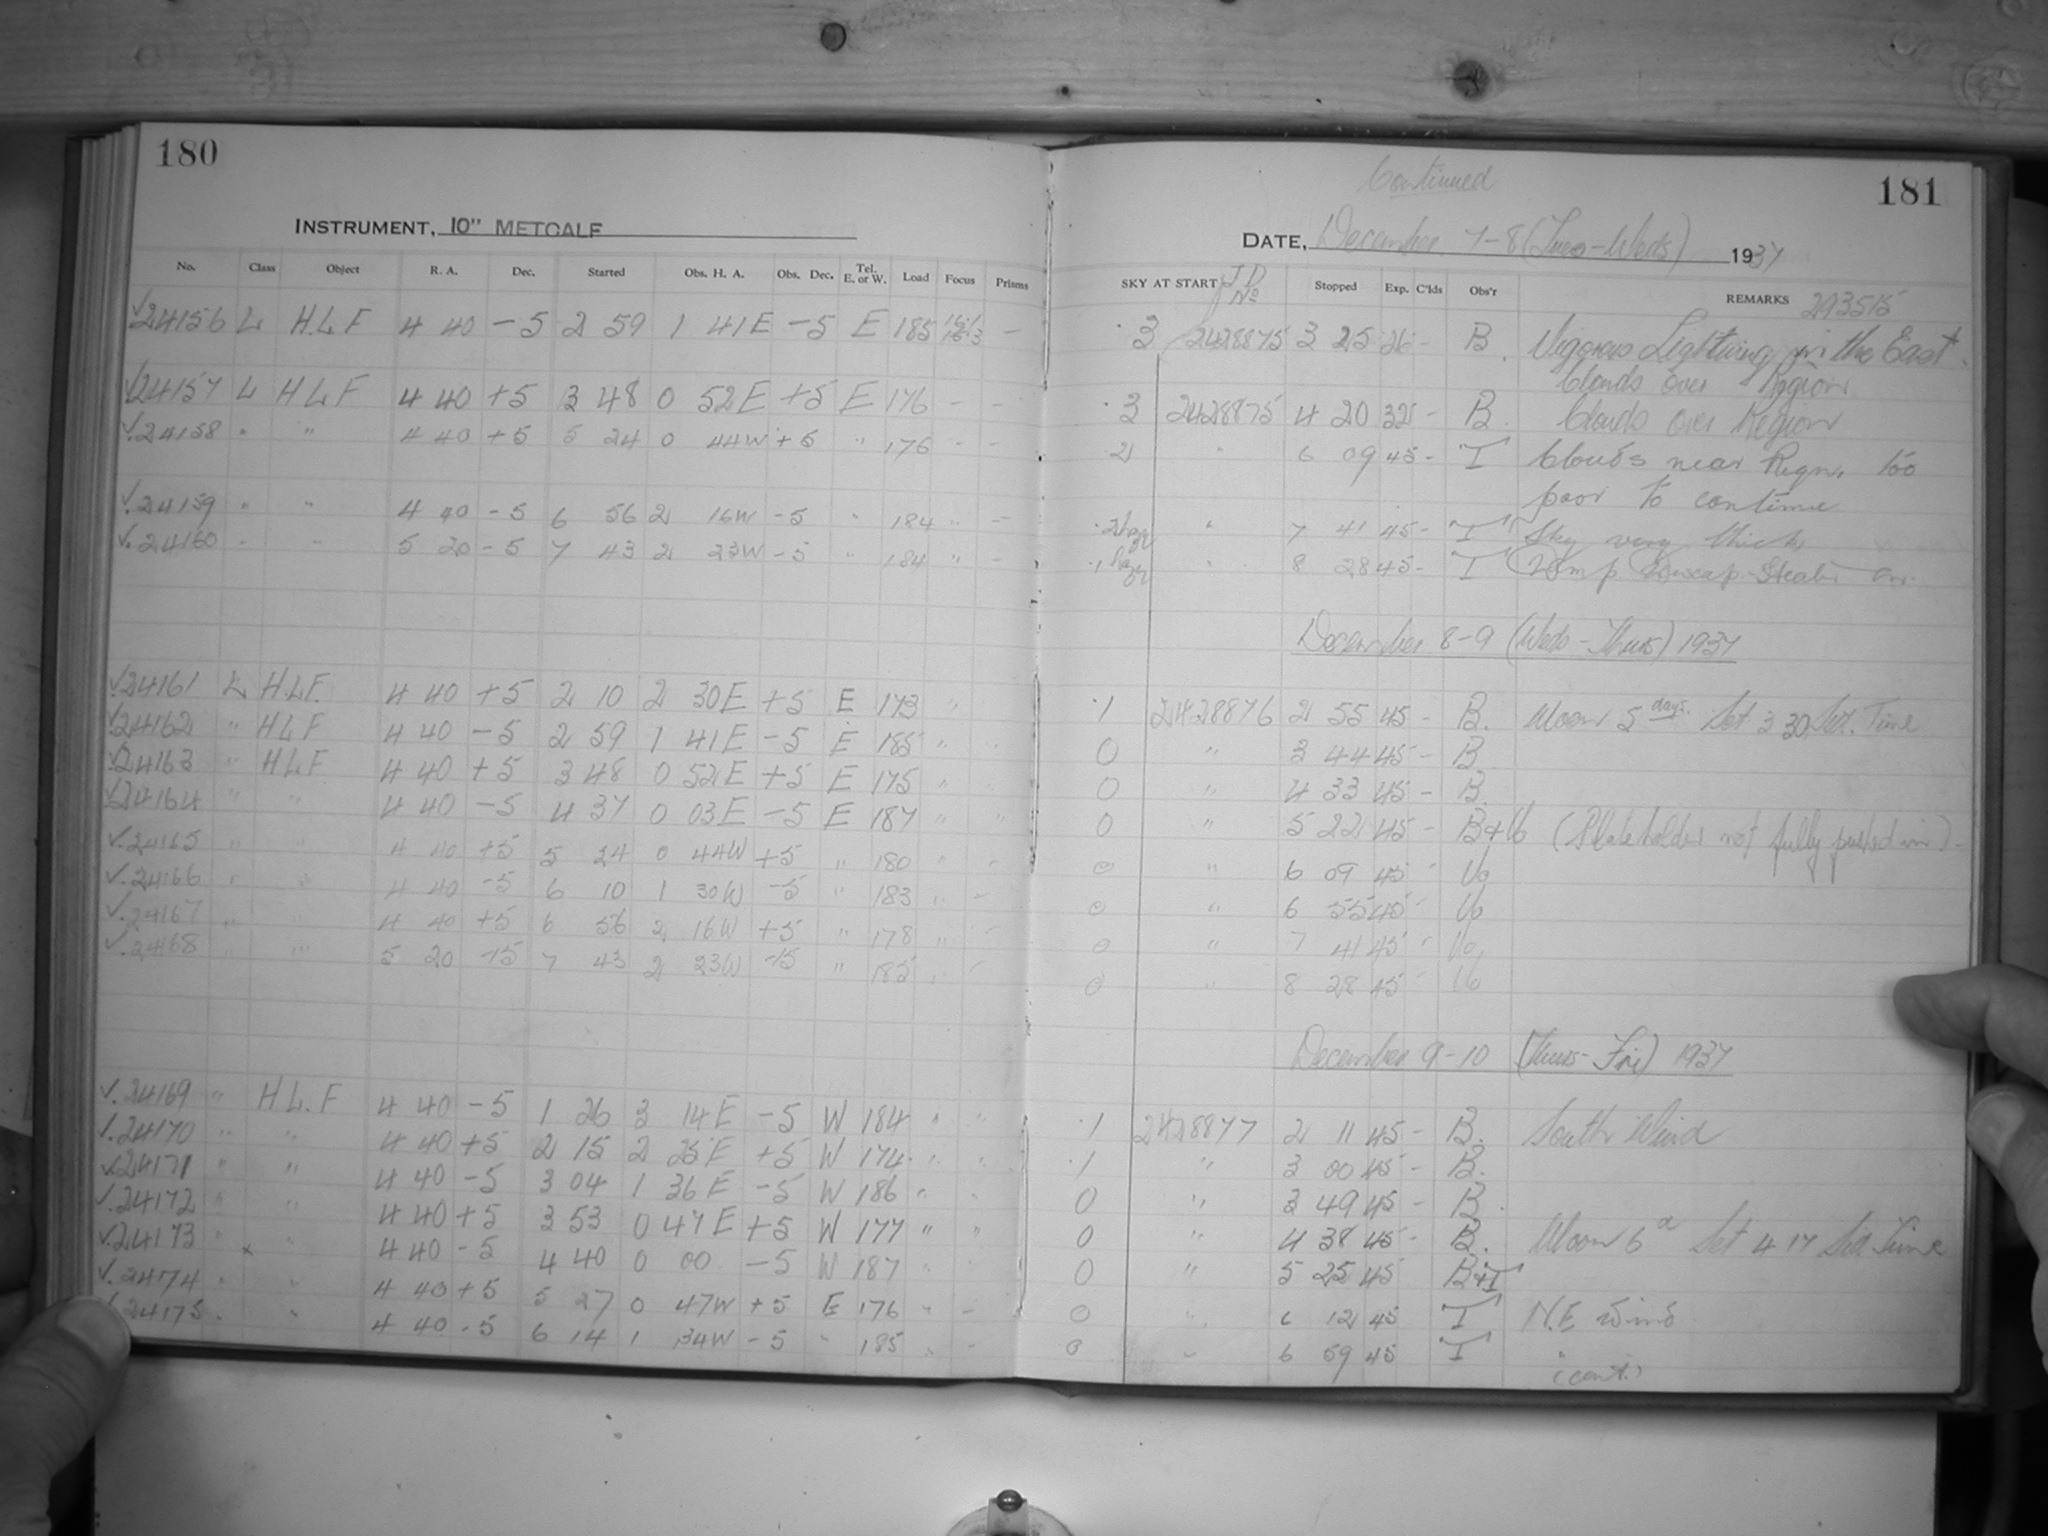 180
INSTRUMENT, 10" METCALF
No. Class Object R. A. Dec. Started Obs. H. A. Obs. Dec. Tel. E. or W. Load Focus Prisms
√24156 L H.L.F 4 40 -5 2 59 1 41E -5 E 185 -
√24157 L H L F 4 40 +5 3 48 0 52E +5 E 176 - -
√.24158 " " 4 40 +5 5 24 0 44W +5 " 176 - -
√.24159 " " 4 40 -5 6 56 2 16W -5 " 184 " -
√.24160 " " 5 20 -5 7 43 2 23W -5 " 184 " -
√24161 L H.L.F. 4 40 +5 2 10 2 30E +5 E 173 "
√24162 " H L F 4 40 -5 2 59 1 41E -5 E 185 " "
√24163 " H L F 4 40 +5 3 48 0 52E +5 E 175 "
√24164 " " 4 40 -5 4 37 0 03E -5 E 187 " "
√.24165 " " 4 40 +5 5 24 0 44W +5 " 180 " "
√.24166 " " 4 40 -5 6 10 1 30W -5 " 183 " -
√.24167 " " 4 40 +5 6 56 2 16W +5 " 178 " -
√.24168 " " 5 20 -15 7 43 2 23W -15 " 185 " -
√.24169 " H L. F 4 40 -5 1 26 3 14E -5 W 184 " "
√.24170 " " 4 40 +5 2 15 2 25E +5 W 174 " "
√24171 " " 4 40 -5 3 04 1 36E -5 W 186 " "
√.24172 " " 4 40 +5 3 53 0 47E +5 W 177 " "
√.24173 " x " 4 40 -5 4 40 0 00 -5 W 187 " "
√.24174 " " 4 40 +5 5 27 0 47W +5 E 176 " -
√.24175 . " 4 40 -5 6 14 1 34W -5 " 185 " -
Continued
181
DATE, December 7-8 (Tues-Weds) 1937
SKY AT START J D No Stopped Exp. C'lds Obs'r REMARKS 293515
.3 2428875 3 25 26 - B. Vigorous Lightning in the East.
Clouds over Region
.3 2428875 4 20 32 - B. Clouds over Region
2 " 6 09 45 - T Clouds near Regn. Too
poor to continue
.2 haze " 7 41 45 - T Sky very thick
.1 haze " 8 28 45 - T
December 8-9 (Weds-Thurs) 1937
.1 2428876 2 55 45 - B. Moon 5 days. Set 3 30 Sid. Time
0 " 3 44 45 - B
0 " 4 33 45 - B.
0 " 5 22 45 - (Plateholder not fully pushed in).
0 " 6 09 45
0 " 6 55 45 -
0 " 7 41 45 "
0 " 8 28 45
December 9-10 (Thurs-Fri) 1937
.1 2428877 2 11 45 - B. South Wind
.1 " 3 00 45 - B.
0 " 3 49 45 - B.
0 " 4 38 45 - B. Moon 6d Set 4 17 Sid. Time
0 " 5 25 45 B+T
0 " 6 12 45 T N.E wind
0 " 6 59 45 T "
(cont.)